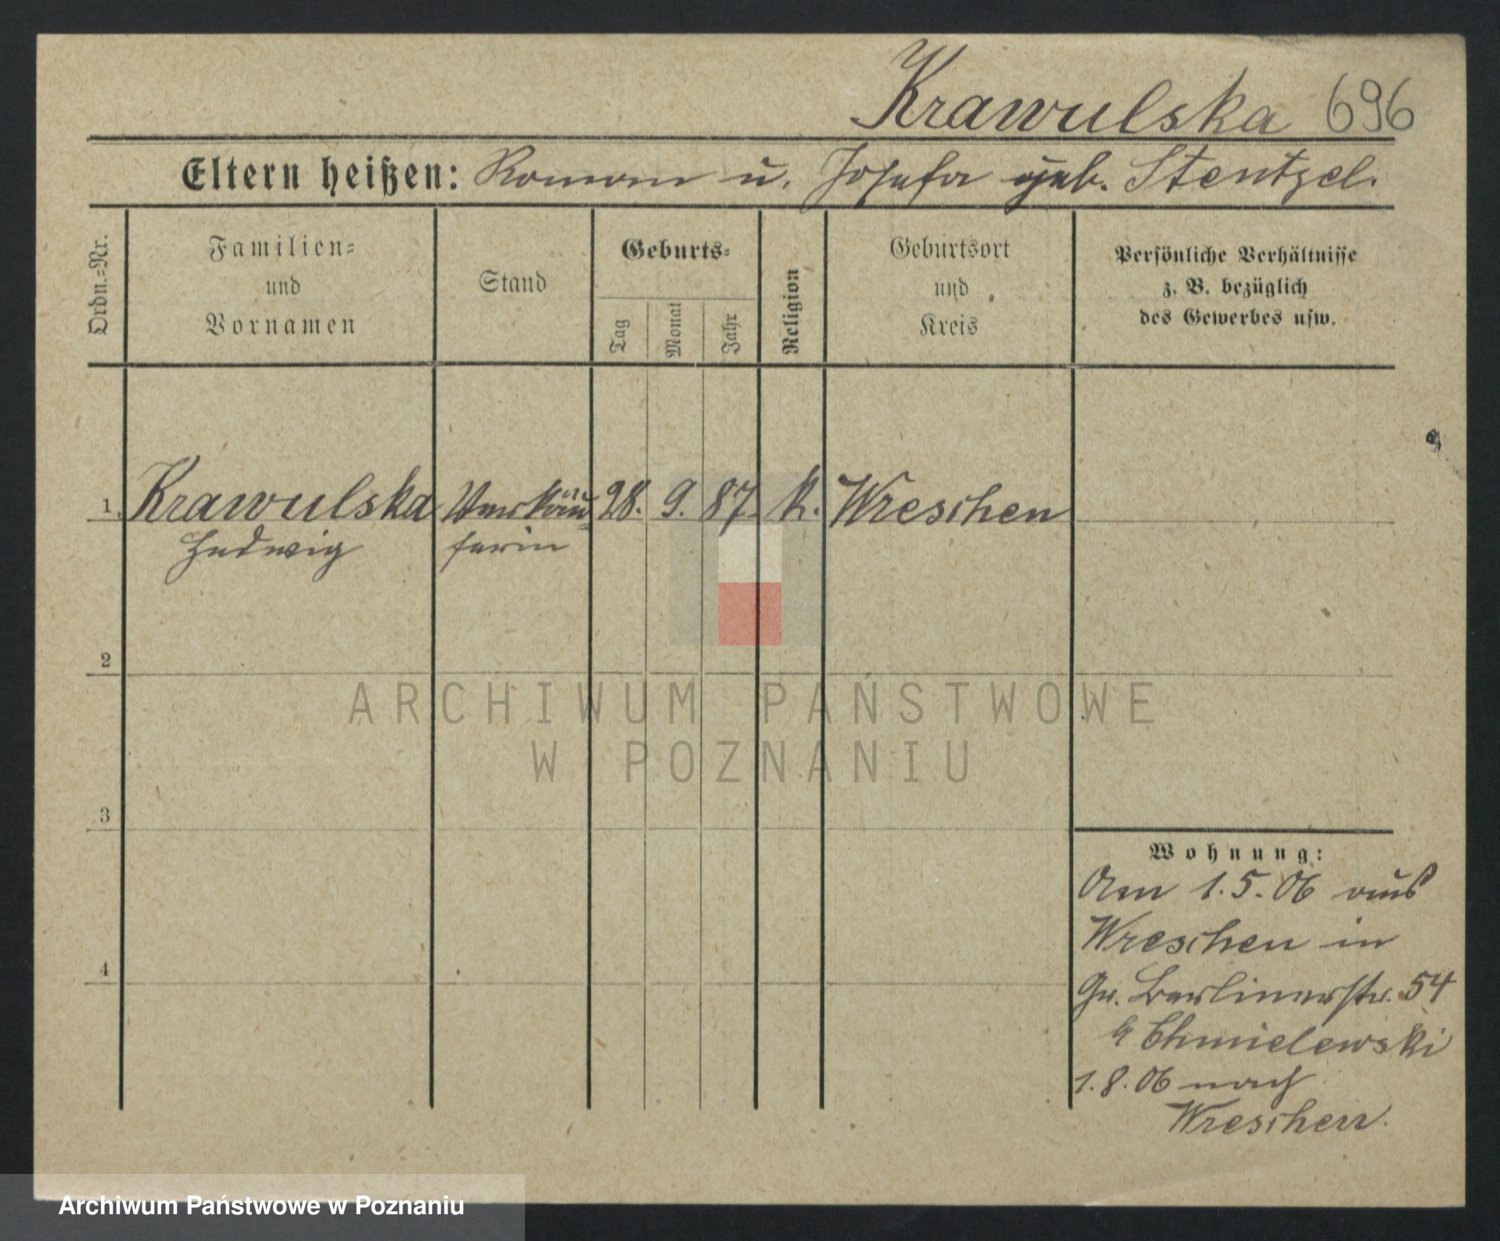 Krawulska 696
Eltern heißen: Roman u. Josefa geb. Stentzel.
Ordn.=Nr.
Familien=
und
Vornamen
Stand
Geburts=
Tag
Monat
Jahr
Religion
Geburtsort
und
Kreis
Persönliche Verhältnisse
z. B. bezüglich
des Gewerbes usw.
1. Krawulska Verkäu= 28. 9. 87. k. Wreschen
Hedwig ferin
2
ARCHIWUM PAŃSTWOWE
W POZNANIU
3
Wohnung:
Am 1.5.06 aus
Wreschen in
Gr. Berlinerstr. 54
b Chmielewski
4
1.8.06 nach
Wreschen.
Archiwum Państwowe w Poznaniu